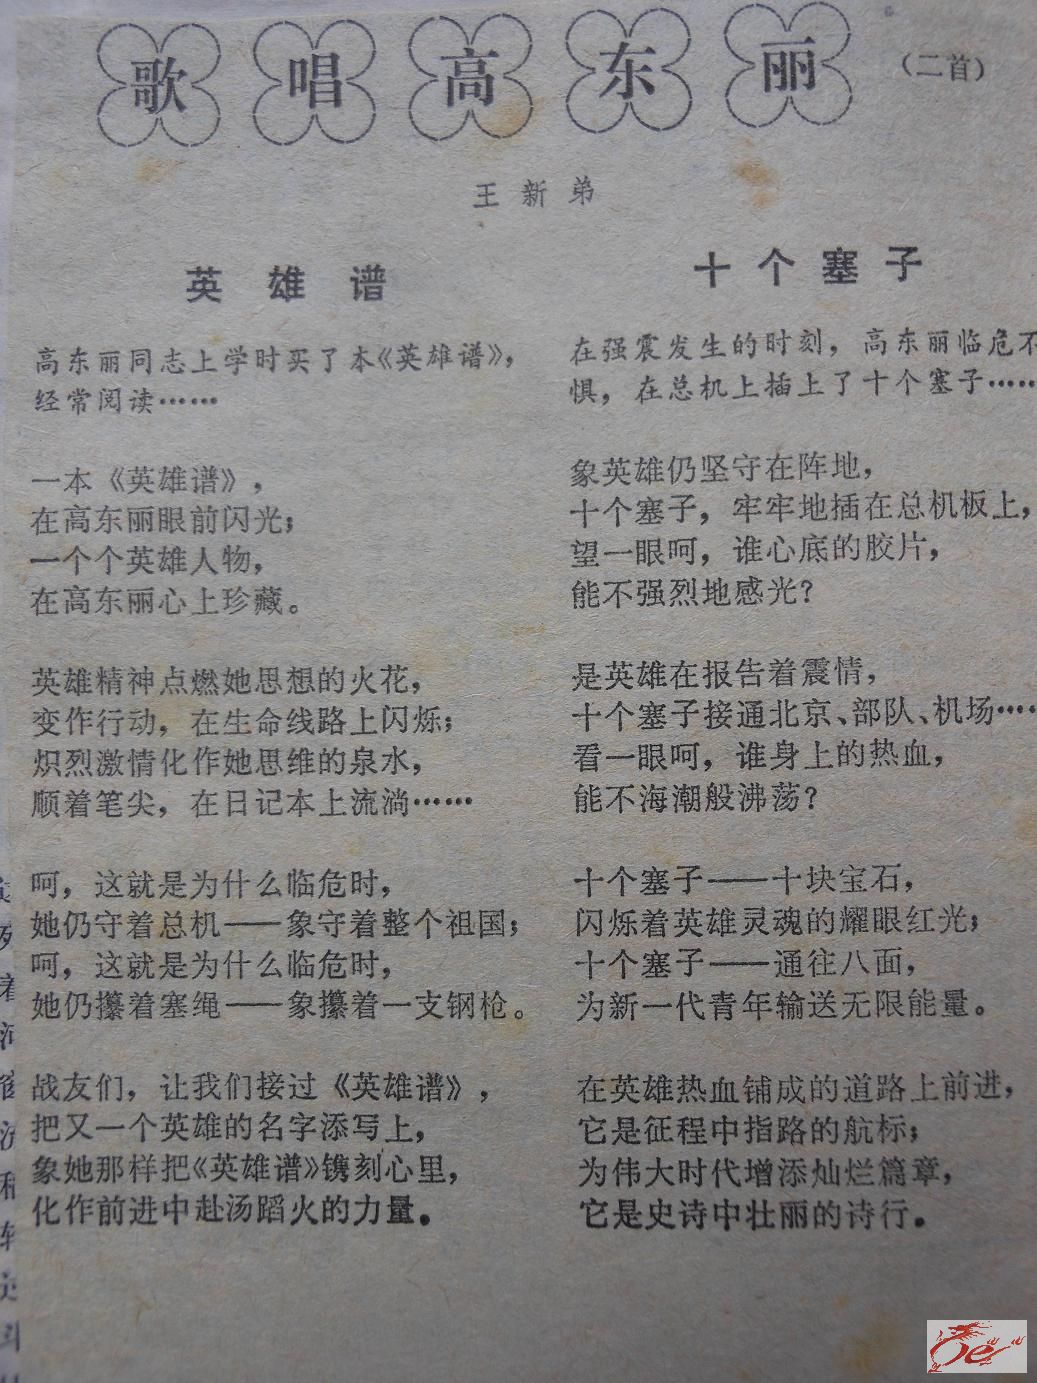 歌唱高东丽（二首）
王新弟
英雄谱
高东丽同志上学时买了本《英雄谱》，
经常阅读……
一本《英雄谱》，
在高东丽眼前闪光；
一个个英雄人物，
在高东丽心上珍藏。
英雄精神点燃她思想的火花，
变作行动，在生命线路上闪烁；
炽烈激情化作她思维的泉水，
顺着笔尖，在日记本上流淌……
呵，这就是为什么临危时，
她仍守着总机——象守着整个祖国；
呵，这就是为什么临危时，
她仍攥着塞绳——象攥着一支钢枪。
战友们，让我们接过《英雄谱》，
把又一个英雄的名字添写上，
象她那样把《英雄谱》镌刻心里，
化作前进中赴汤蹈火的力量。
十个塞子
在强震发生的时刻，高东丽临危不
惧，在总机上插上了十个塞子……
象英雄仍坚守在阵地，
十个塞子，牢牢地插在总机板上，
望一眼呵，谁心底的胶片，
能不强烈地感光？
是英雄在报告着震情，
十个塞子接通北京、部队、机场……
看一眼呵，谁身上的热血，
能不海潮般沸荡？
十个塞子——十块宝石，
闪烁着英雄灵魂的耀眼红光；
十个塞子——通往八面，
为新一代青年输送无限能量。
在英雄热血铺成的道路上前进，
它是征程中指路的航标；
为伟大时代增添灿烂篇章，
它是史诗中壮丽的诗行。